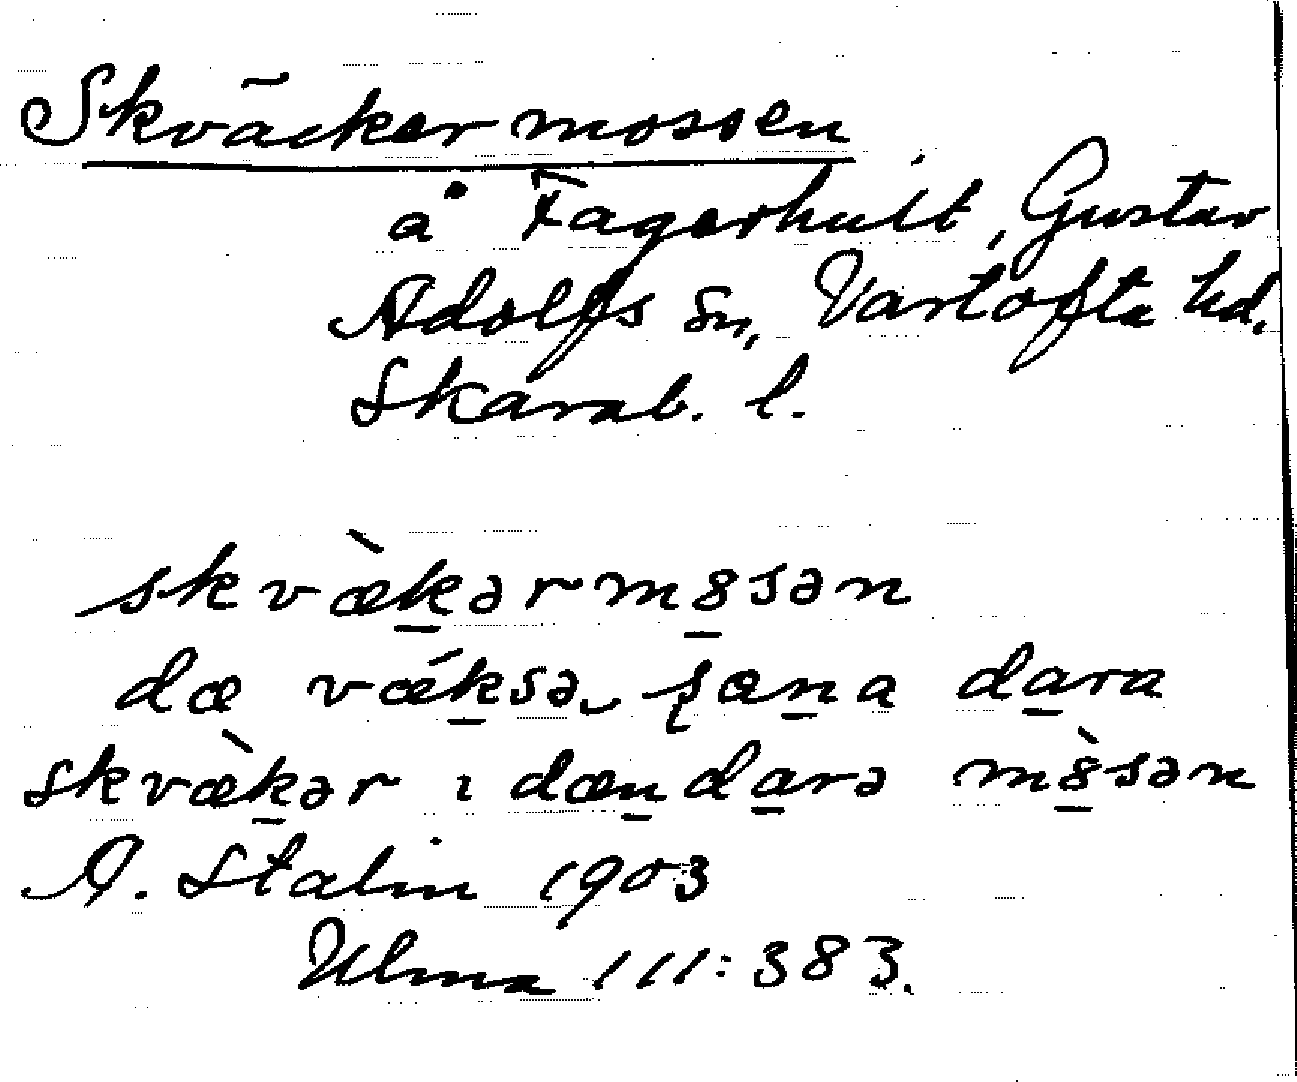 Skväckermossen
å Fagerhult, Gustav
Adolfs sn, Vartofta hd.
Skarab. l.
skvæ̀k̠ərm8̠sən
dæ vǽk̠sə ʂæn̠a da̠ra
skvæ̀k̠ər ı dæn̠da̠rə m8̠̀sən
A. Stalin 1903
Ulma 111:383.